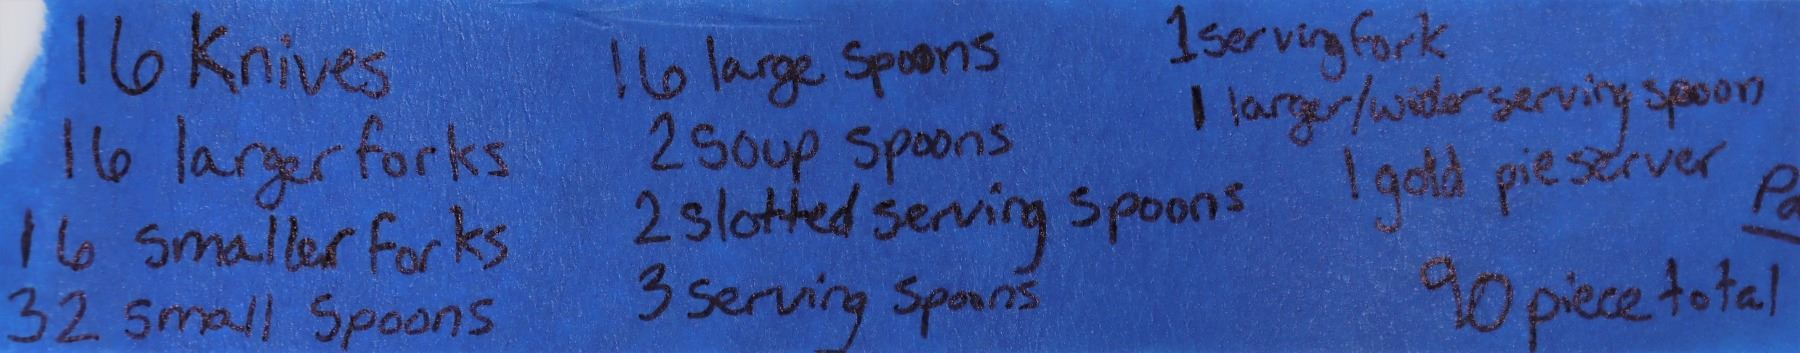 16 Knives
16 larger forks
16 smaller forks
32 small spoons
16 large spoons
2 soup spoons
2 slotted serving spoons
3 serving spoons
1 serving fork
1 larger/wider serving spoon
1 gold pie server
90 piece total